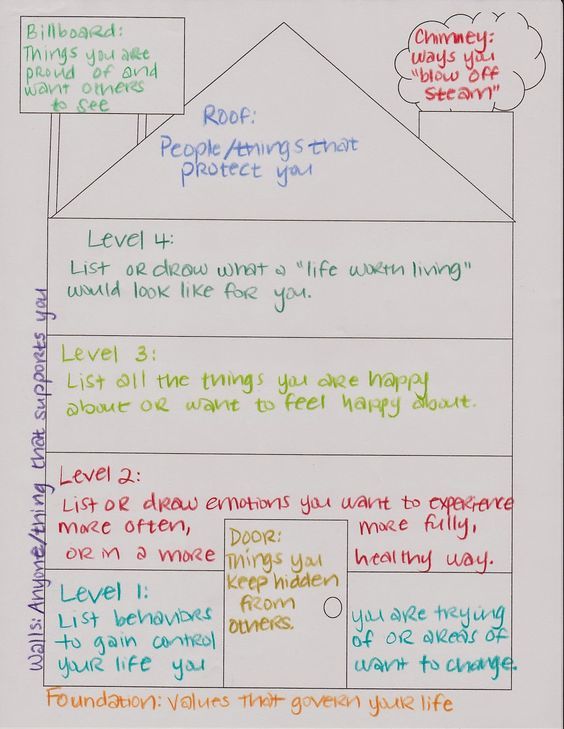 Billboard:
Things you are
proud of and
want others
to see
Chimney:
ways you
"blow off
steam"
Roof:
People/things that
protect you
Level 4:
List or draw what a "life worth living"
would look like for you.
Level 3:
List all the things you are happy
about OR want to feel happy about.
Walls: Anyone/thing that supports you
Level 2:
List OR draw emotions you want to experience
more often, more fully,
or in a more healthy way.
Door:
Things you
keep hidden
from
others.
Level 1:
List behaviors you are trying
to gain control of OR areas of
your life you want to change.
Foundation: values that govern your life